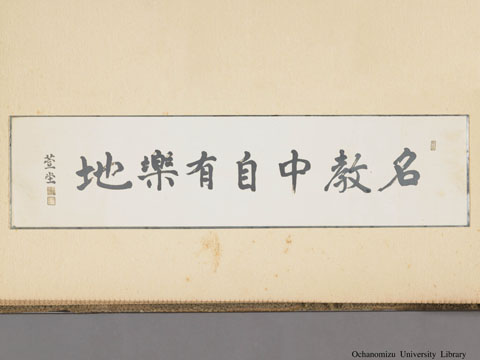 名教中自有樂地
萱堂
Ochanomizu University Library